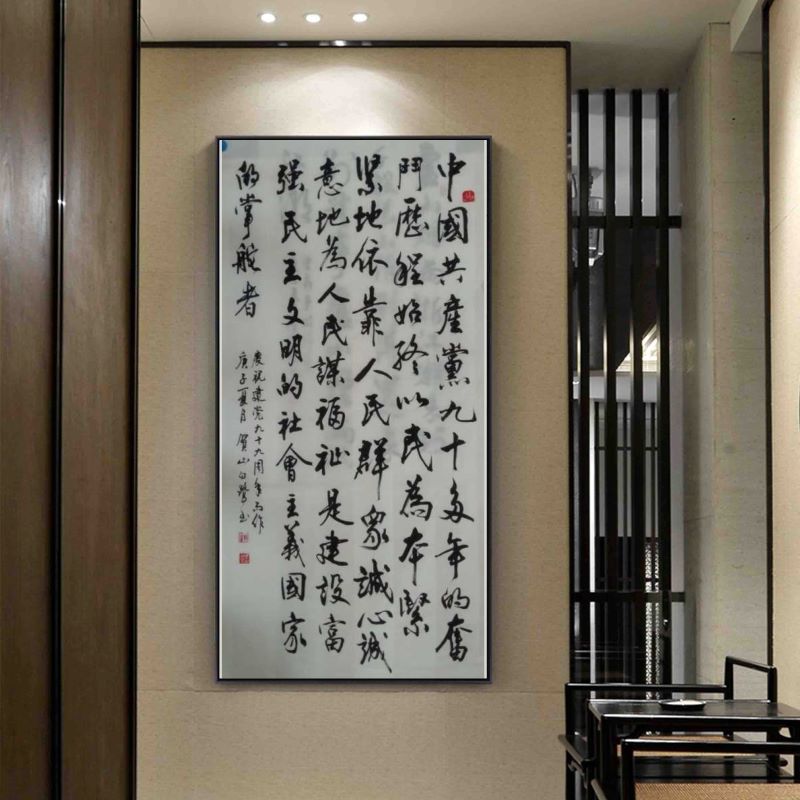 中國共產黨九十多年的奮
鬥歷程始終以民為本緊
緊地依靠人民群眾誠心誠
意地為人民謀福祉是建設富
强民主文明的社會主義國家
的掌舵者
慶祝建党九十九周年而作
庚子夏月賀山白鷺書